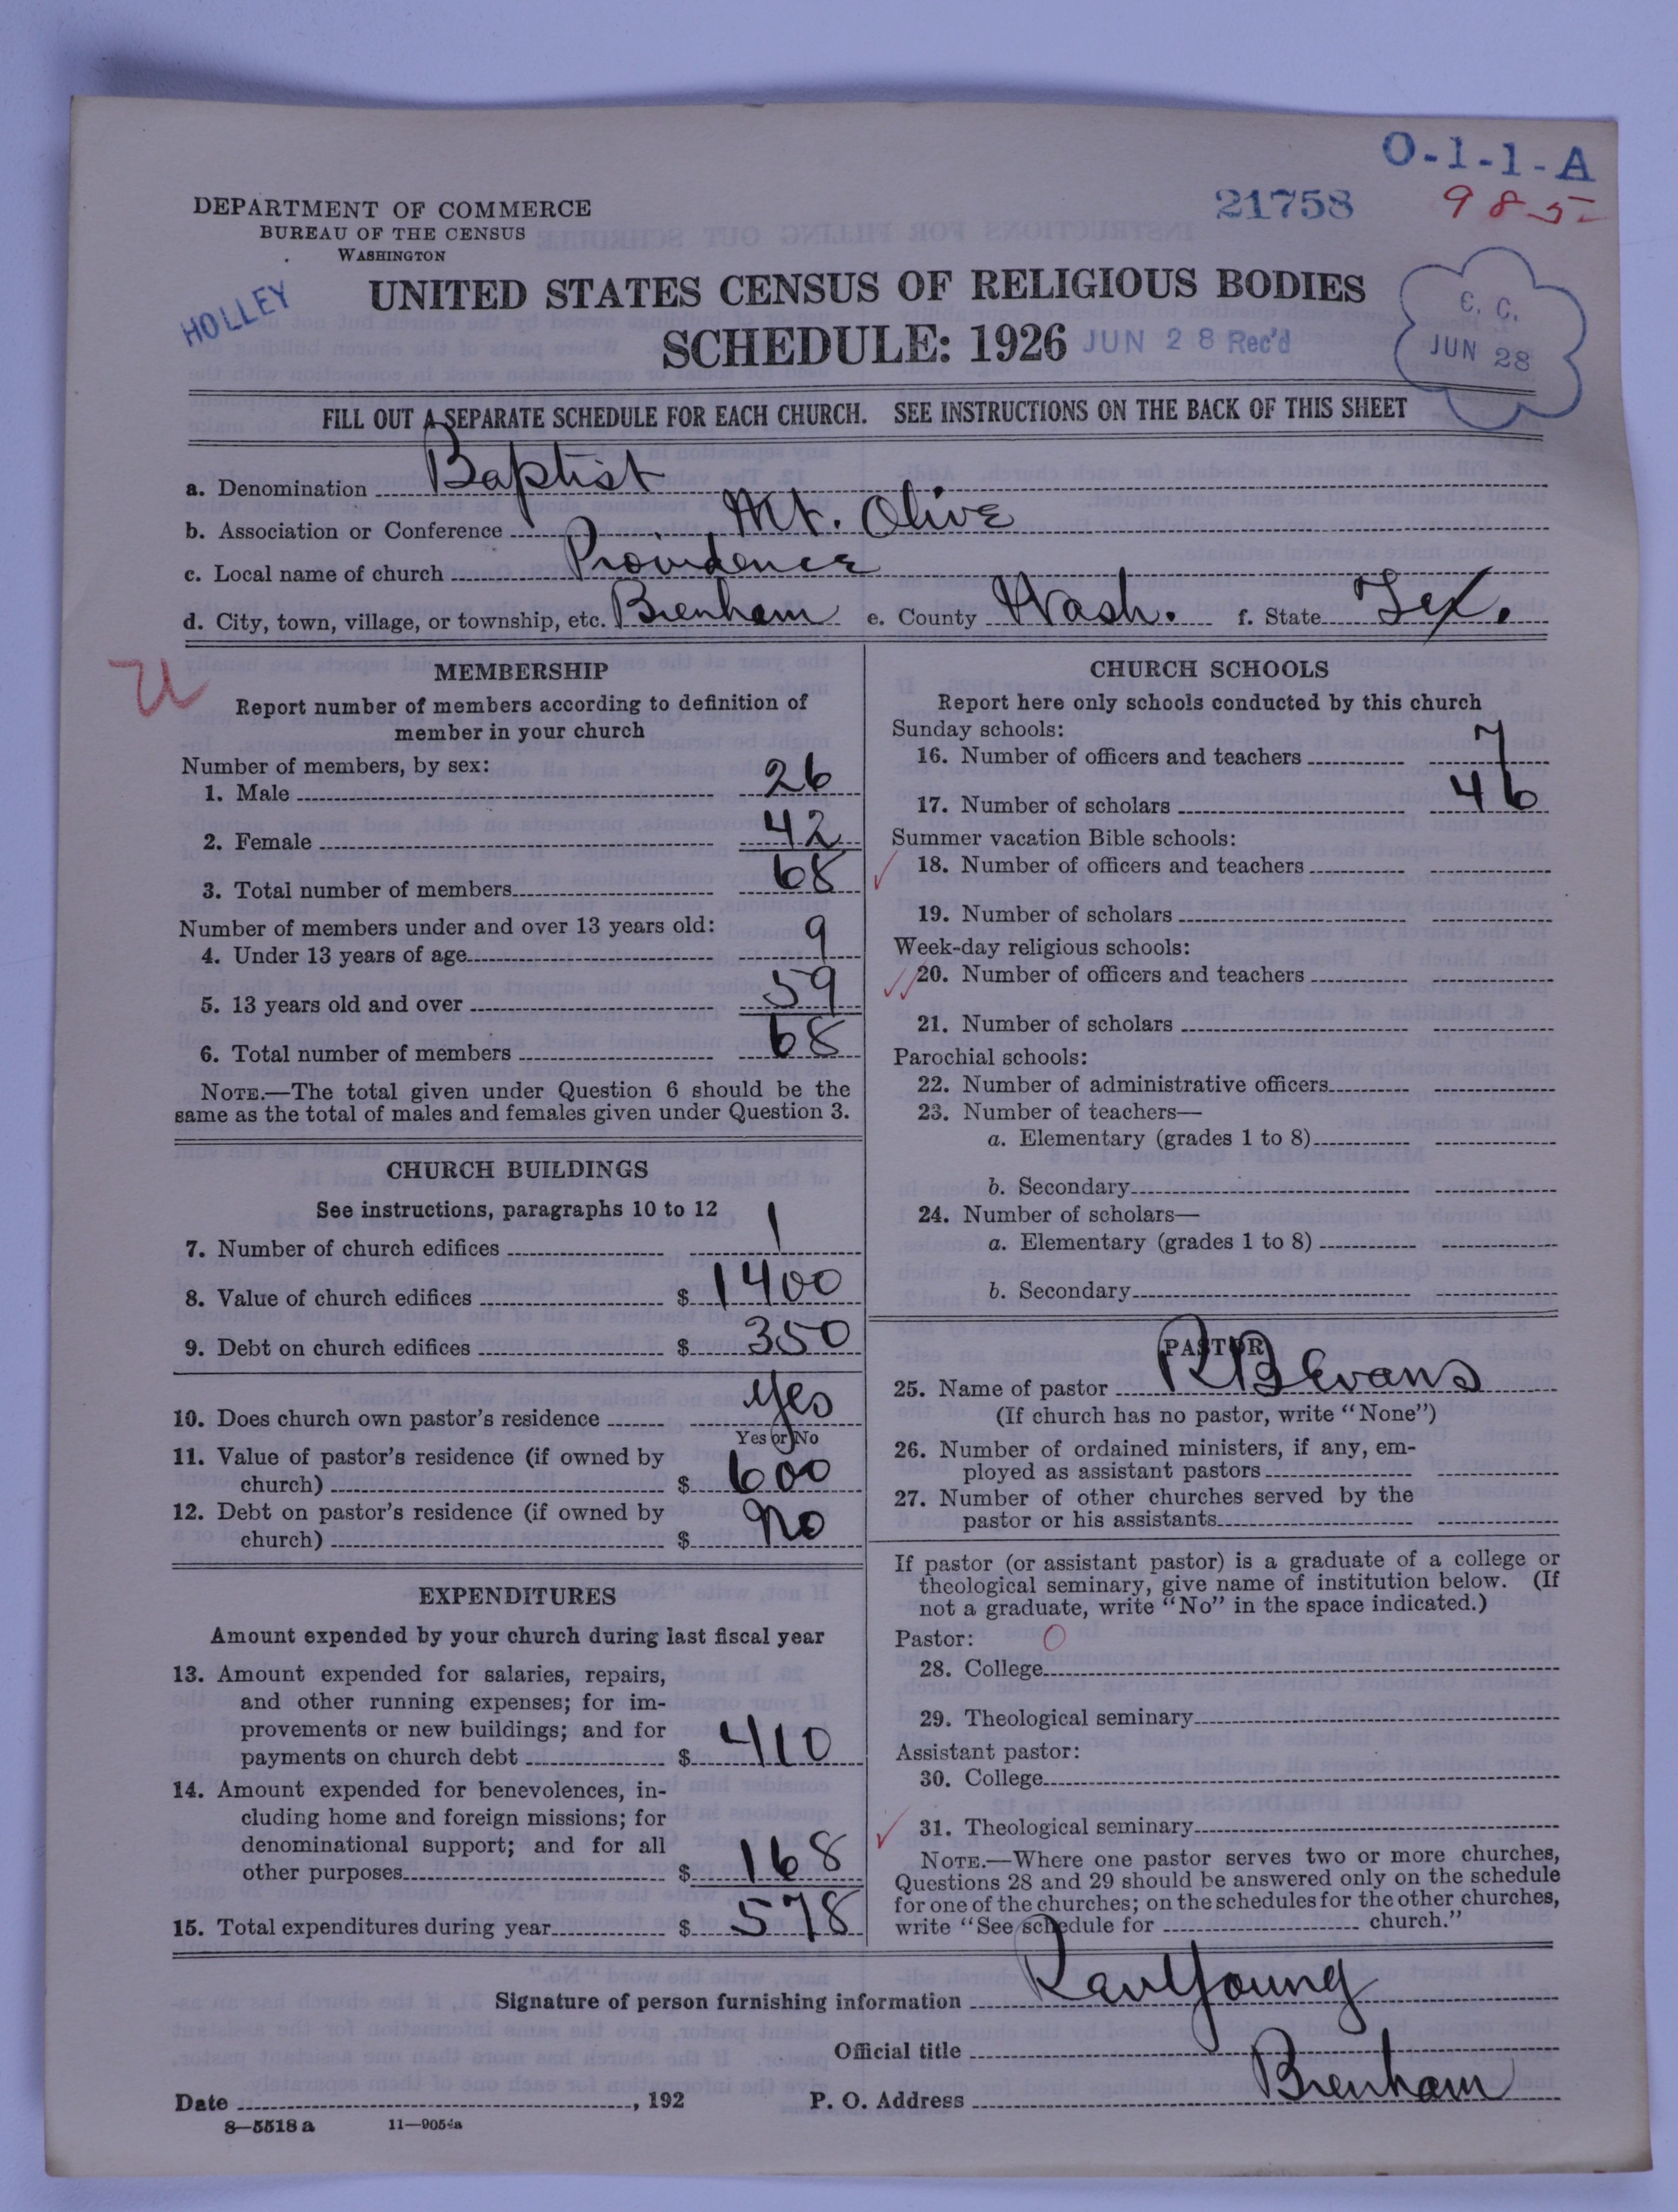 O-1-1-A
21758
985
DEPARTMENT OF COMMERCE
BUREAU OF THE CENSUS
WASHINGTON
HOLLEY
UNITED STATES CENSUS OF RELIGIOUS BODIES
SCHEDULE: 1926 JUN 28 Rec'd
C. C.
JUN 28
FILL OUT A SEPARATE SCHEDULE FOR EACH CHURCH. SEE INSTRUCTIONS ON THE BACK OF THIS SHEET
a. Denomination Baptist
b. Association or Conference Mt. Olive
c. Local name of church Providence
d. City, town, village, or township, etc. Brenham e. County Wash. f. State Tex.
U
MEMBERSHIP
Report number of members according to definition of
member in your church
Number of members, by sex:
1. Male 26
2. Female 42
3. Total number of members 68
Number of members under and over 13 years old:
4. Under 13 years of age 9
5. 13 years old and over 59
6. Total number of members 68
NOTE.—The total given under Question 6 should be the
same as the total of males and females given under Question 3.
CHURCH BUILDINGS
See instructions, paragraphs 10 to 12
7. Number of church edifices 1
8. Value of church edifices $ 1400
9. Debt on church edifices $ 350
10. Does church own pastor's residence yes
Yes or No
11. Value of pastor's residence (if owned by
church) $ 600
12. Debt on pastor's residence (if owned by
church) $ no
EXPENDITURES
Amount expended by your church during last fiscal year
13. Amount expended for salaries, repairs,
and other running expenses; for im-
provements or new buildings; and for
payments on church debt $ 410
14. Amount expended for benevolences, in-
cluding home and foreign missions; for
denominational support; and for all
other purposes $ 168
15. Total expenditures during year $ 578
CHURCH SCHOOLS
Report here only schools conducted by this church
Sunday schools:
16. Number of officers and teachers 7
17. Number of scholars 46
Summer vacation Bible schools:
18. Number of officers and teachers
19. Number of scholars
Week-day religious schools:
20. Number of officers and teachers
21. Number of scholars
Parochial schools:
22. Number of administrative officers
23. Number of teachers—
a. Elementary (grades 1 to 8)
b. Secondary
24. Number of scholars—
a. Elementary (grades 1 to 8)
b. Secondary
PASTOR
25. Name of pastor R B Evans
(If church has no pastor, write "None")
26. Number of ordained ministers, if any, em-
ployed as assistant pastors
27. Number of other churches served by the
pastor or his assistants
If pastor (or assistant pastor) is a graduate of a college or
theological seminary, give name of institution below. (If
not a graduate, write "No" in the space indicated.)
Pastor: 0
28. College
29. Theological seminary
Assistant pastor:
30. College
31. Theological seminary
NOTE.—Where one pastor serves two or more churches,
Questions 28 and 29 should be answered only on the schedule
for one of the churches; on the schedules for the other churches,
write "See schedule for church."
Signature of person furnishing information Young
Official title
Date , 192 P. O. Address Brenham
8—5518 a 11—9054a